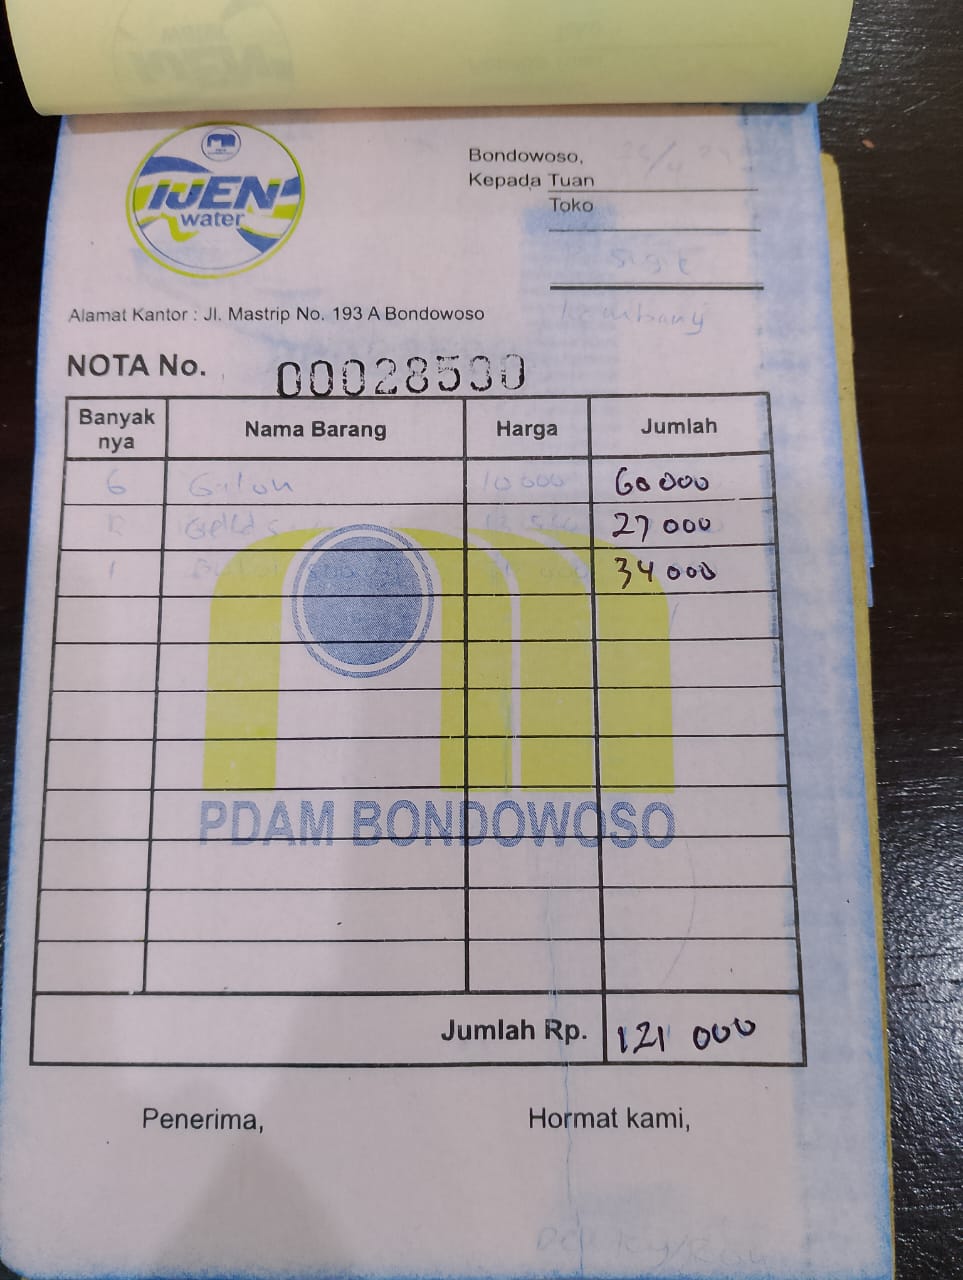 IJEN
water
Bondowoso,
Kepada Tuan
Toko
Sigit
Kembang
Alamat Kantor : Jl. Mastrip No. 193 A Bondowoso
NOTA No. 00028530
Banyak nya Nama Barang Harga Jumlah
6 Galon 10 000 60 000
27 000
1 34 000
PDAM BONDOWOSO
Jumlah Rp. 121 000
Penerima, Hormat kami,